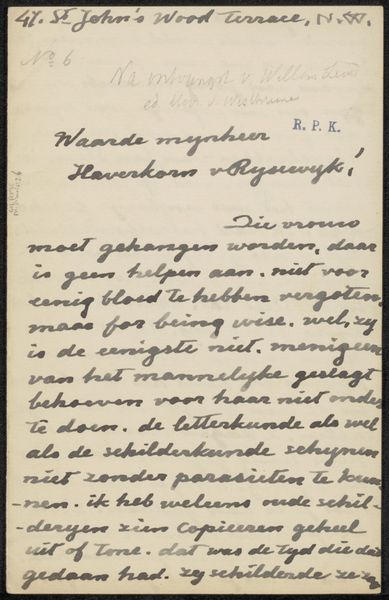 47. St. John's Wood terrace, N.W.
No 6
Na ontvangst v. Willem
ed.
R. P. K.
Waarde mynheer
Haverkorn v Rysewyk!
Die vrouw
moet gehangen worden, daar
is geen helpen aan. niet voor
eenig bloed te hebben vergoten,
maar for being wise. wel, zy
is de eenigste niet. menigeen
van het mannelyke geslagt
behoeven voor haar niet onder
te doen. de letterkunde als wel
als de schilderkunde schynen
niet zonder parasieten te kun-
-nen. ik heb weleens oude schil-
-deryen zien copieeren geheel
uit of tone. dat was de tyd die dat
gedaan had. zy schilderde ze zo